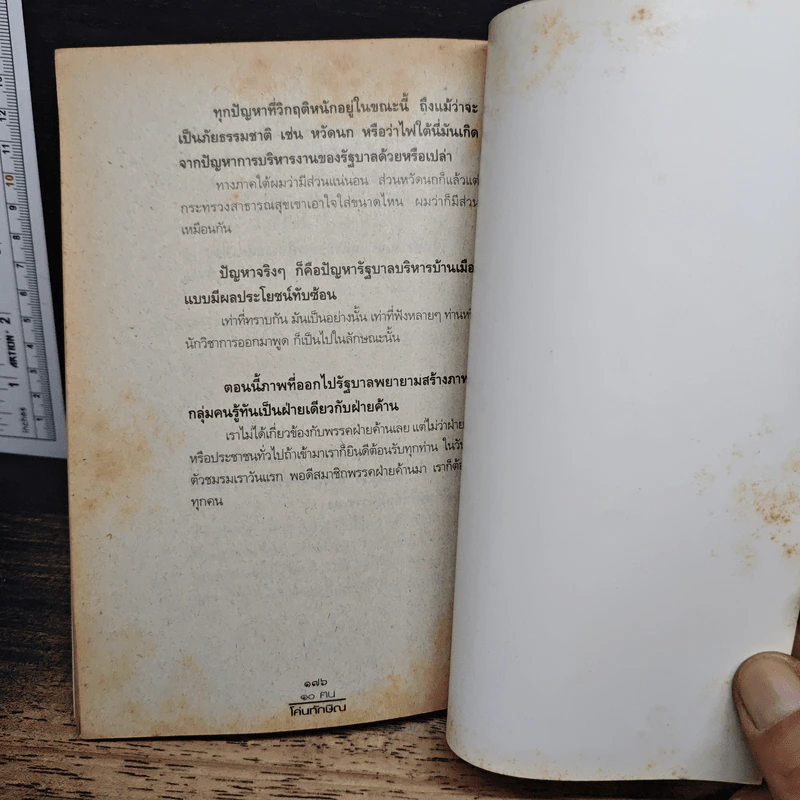 ทุกปัญหาที่วิกฤติหนักอยู่ในขณะนี้ ถึงแม้ว่าจะ
เป็นภัยธรรมชาติ เช่น หวัดนก หรือว่าไฟใต้นี่มันเกิด
จากปัญหาการบริหารงานของรัฐบาลด้วยหรือเปล่า
ทางภาคใต้ผมว่ามีส่วนแน่นอน ส่วนหวัดนกก็แล้วแต่
กระทรวงสาธารณสุขเขาเอาใจใส่ขนาดไหน ผมว่าก็มีส่วน
เหมือนกัน
ปัญหาจริงๆ ก็คือปัญหารัฐบาลบริหารบ้านเมือง
แบบมีผลประโยชน์ทับซ้อน
เท่าที่ทราบกัน มันเป็นอย่างนั้น เท่าที่ฟังหลายๆ ท่าน
นักวิชาการออกมาพูด ก็เป็นไปในลักษณะนั้น
ตอนนี้ภาพที่ออกไปรัฐบาลพยายามสร้างภาพ
กลุ่มคนรู้ทันเป็นฝ่ายเดียวกับฝ่ายค้าน
เราไม่ได้เกี่ยวข้องกับพรรคฝ่ายค้านเลย แต่ไม่ว่าฝ่าย
หรือประชาชนทั่วไปถ้าเข้ามาเราก็ยินดีต้อนรับทุกท่าน ในวัน
ตัวชมรมเราวันแรก พอดีสมาชิกพรรคฝ่ายค้านมา เราก็
ทุกคน
๑๗๖
๑๐ คน
โค่นทักษิณ
inches
1
2
10
ARTION